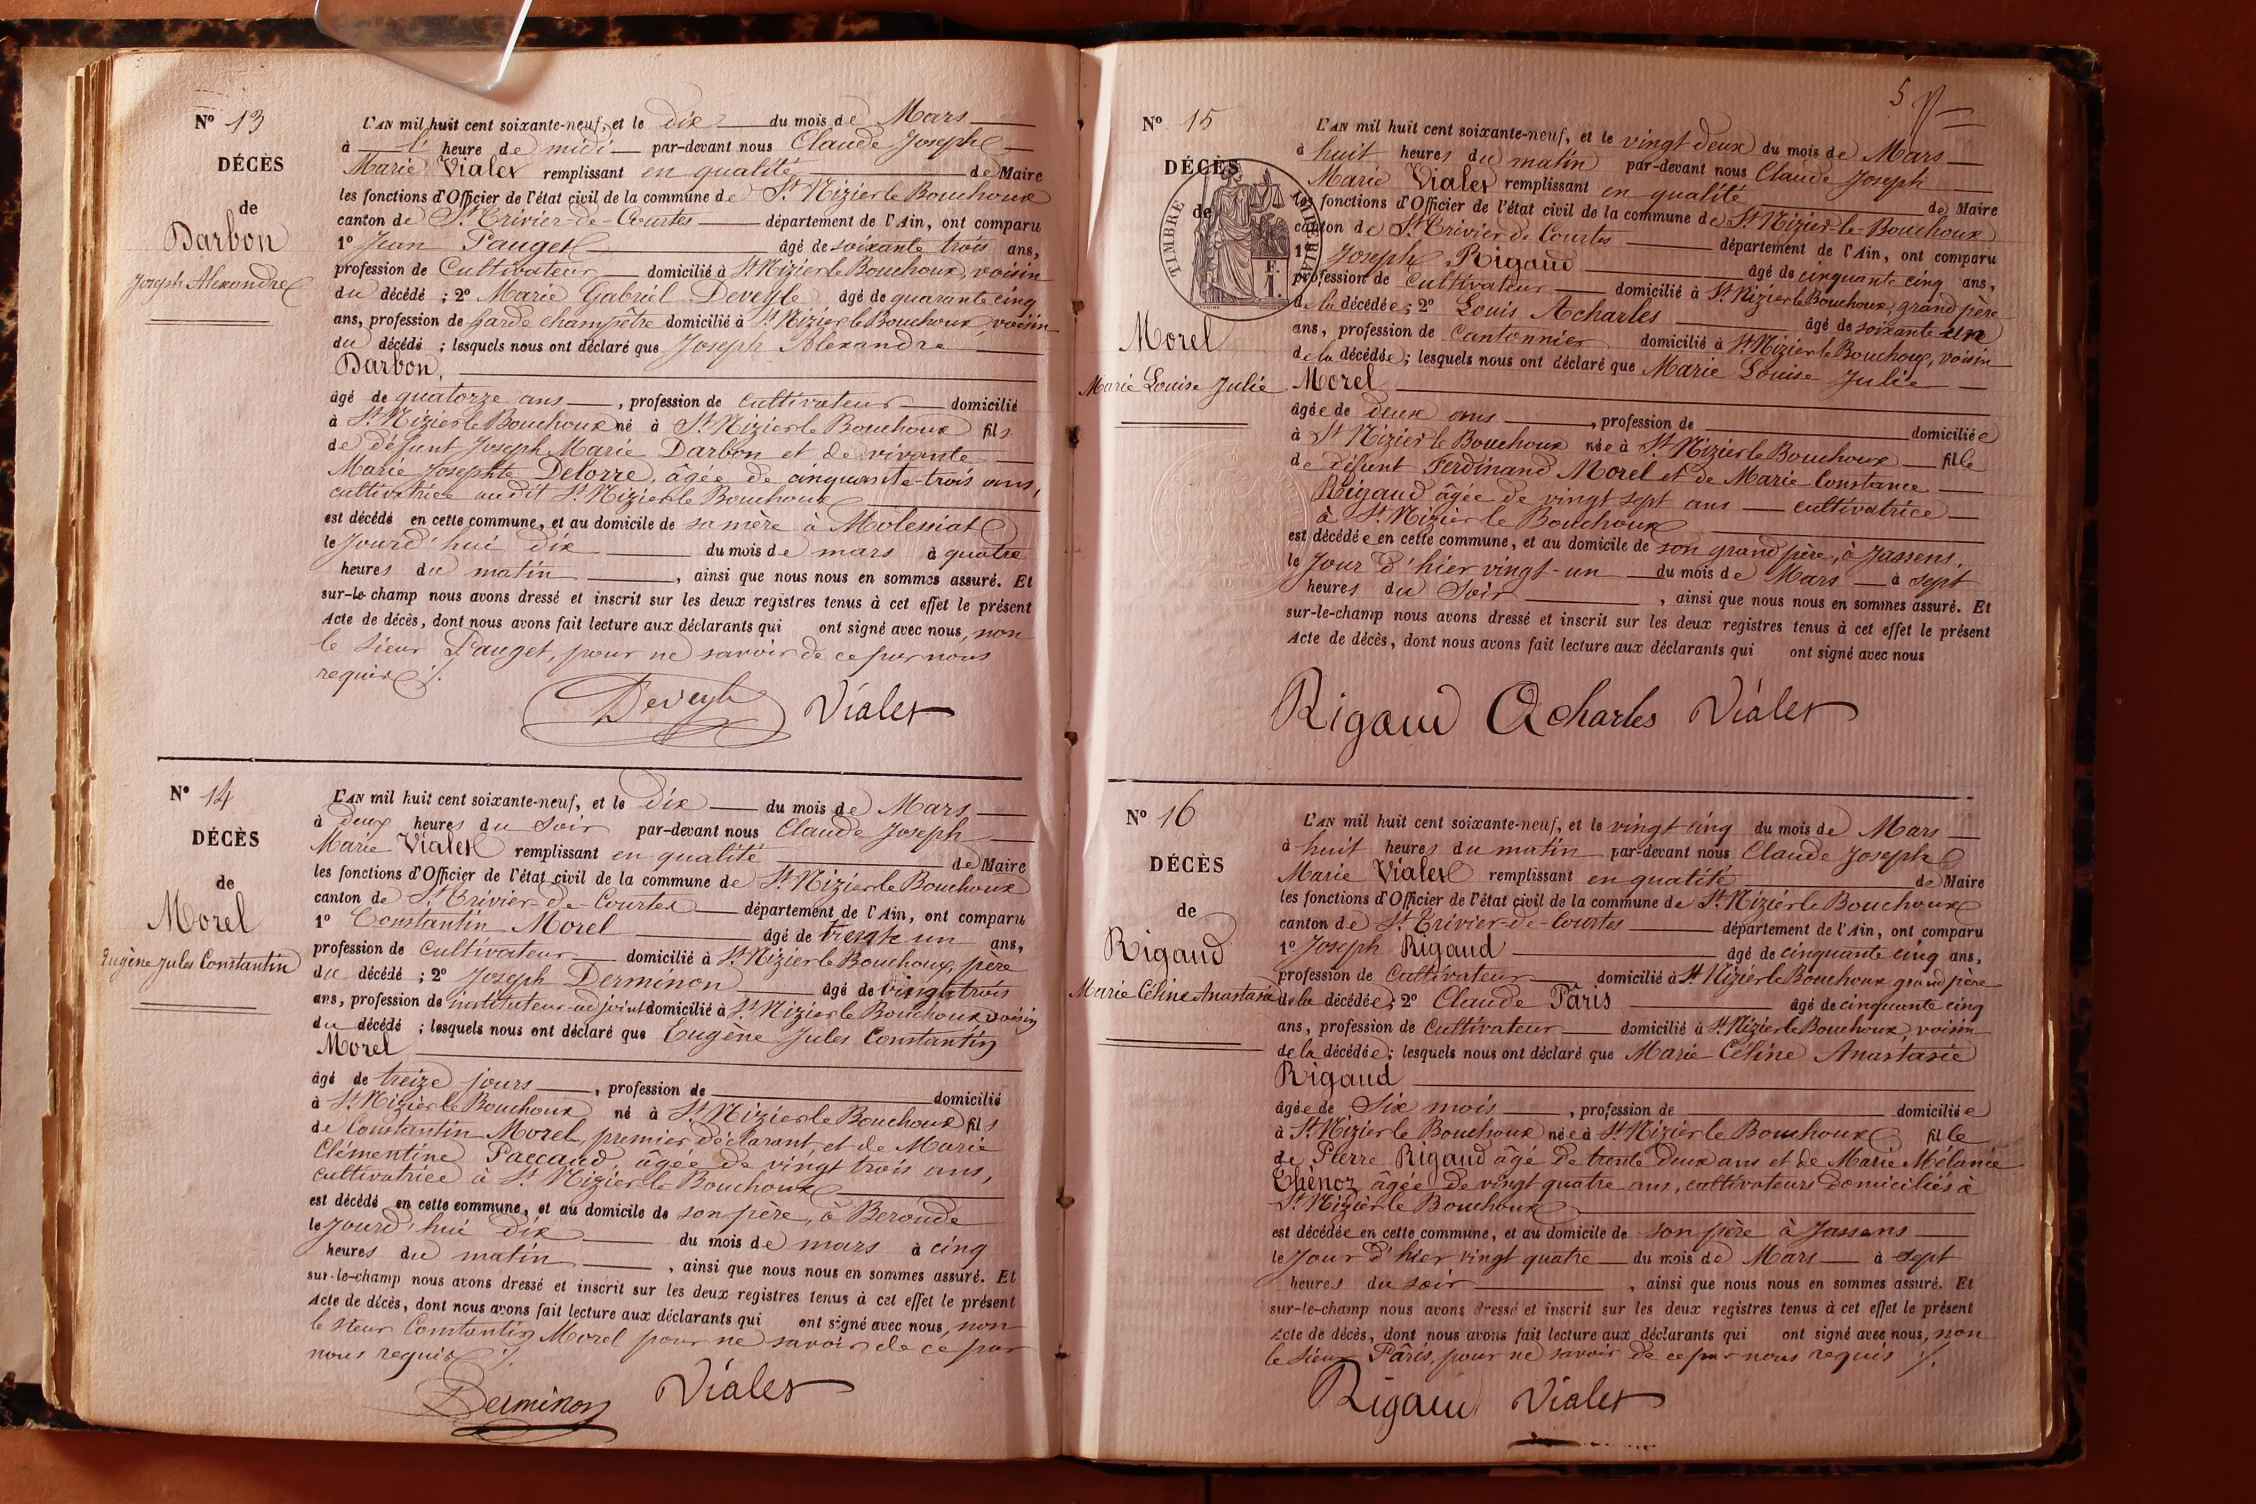 N° 13
DÉCÈS
de
Darbon
Joseph Alexandre
L'AN mil huit cent soixante-neuf, et le dix du mois de Mars
à l' heure de midi par-devant nous Claude Joseph
Marie Vialet remplissant en qualité de Maire
les fonctions d'Officier de l'état civil de la commune de St Nizier le Bouchoux
canton de St Trivier-de-Courtes département de l'Ain, ont comparu
1° Jean Pauget âgé de soixante trois ans,
profession de Cultivateur domicilié à St Nizier le Bouchoux, voisin
du décédé ; 2° Marie Gabriel Deveyle âgé de quarante cinq
ans, profession de garde champêtre domicilié à St Nizier le Bouchoux, voisin
du décédé ; lesquels nous ont déclaré que Joseph Alexandre
Darbon,
âgé de quatorze ans, profession de cultivateur domicilié
à St Nizier le Bouchoux né à St Nizier le Bouchoux fils
de défunt Joseph Marie Darbon et de vivante
Marie Josephte Delorre, âgée de cinquante-trois ans,
cultivatrice audit St Nizier le Bouchoux
est décédé en cette commune, et au domicile de sa mère à Molessiat
le Jourd'hui dix du mois de mars à quatre
heures du matin, ainsi que nous nous en sommes assuré. Et
sur-le-champ nous avons dressé et inscrit sur les deux registres tenus à cet effet le présent
Acte de décès, dont nous avons fait lecture aux déclarants qui ont signé avec nous, non
le sieur Pauget, pour ne savoir de ce par nous
requis ./.
Deveyle Vialet
N° 14
DÉCÈS
de
Morel
Eugène Jules Constantin
L'AN mil huit cent soixante-neuf, et le dix du mois de Mars
à deux heures du soir par-devant nous Claude Joseph
Marie Vialet remplissant en qualité de Maire
les fonctions d'Officier de l'état civil de la commune de St Nizier le Bouchoux
canton de St Trivier-de-Courtes département de l'Ain, ont comparu
1° Constantin Morel âgé de vingt un ans,
profession de Cultivateur domicilié à St Nizier le Bouchoux, père
du décédé ; 2° Joseph Derminon âgé de vingt trois
ans, profession de instituteur-adjoint domicilié à St Nizier le Bouchoux voisin
du décédé ; lesquels nous ont déclaré que Eugène Jules Constantin
Morel
âgé de treize jours, profession de domicilié
à St Nizier le Bouchoux né à St Nizier le Bouchoux fils
de Constantin Morel, premier déclarant, et de Marie
Clémentine Paccaud, âgée de vingt trois ans,
cultivatrice à St Nizier le Bouchoux
est décédé en cette commune, et au domicile de son père, à Beronde
le Jourd'hui dix du mois de mars à cinq
heures du matin, ainsi que nous nous en sommes assuré. Et
sur-le-champ nous avons dressé et inscrit sur les deux registres tenus à cet effet le présent
Acte de décès, dont nous avons fait lecture aux déclarants qui ont signé avec nous, non
le sieur Constantin Morel pour ne savoir de ce par
nous requis ./.
Derminon Vialet
5
N° 15
DÉCÈS
de
TIMBRE IMPERIAL
Morel
Marie Louise Julie
L'AN mil huit cent soixante-neuf, et le vingt deux du mois de Mars
à huit heures du matin par-devant nous Claude Joseph
Marie Vialet remplissant en qualité de Maire
les fonctions d'Officier de l'état civil de la commune de St Nizier-le-Bouchoux
canton de St Trivier-de-Courtes département de l'Ain, ont comparu
1° Joseph Rigaud âgé de cinquante cinq ans,
profession de Cultivateur domicilié à St Nizier le Bouchoux, grand père
de la décédée ; 2° Louis Acharles âgé de soixante un
ans, profession de Cantonnier domicilié à St Nizier le Bouchoux, voisin
de la décédée ; lesquels nous ont déclaré que Marie Louise Julie
Morel
âgée de deux ans, profession de domiciliée
à St Nizier le Bouchoux née à St Nizier le Bouchoux fille
de défunt Ferdinand Morel et de Marie Constance
Rigaud âgée de vingt sept ans cultivatrice
à St Nizier le Bouchoux
est décédée en cette commune, et au domicile de son grand père, à Jassens,
le Jour d'hier vingt-un du mois de Mars à sept
heures du Soir, ainsi que nous nous en sommes assuré. Et
sur-le-champ nous avons dressé et inscrit sur les deux registres tenus à cet effet le présent
Acte de décès, dont nous avons fait lecture aux déclarants qui ont signé avec nous
Rigaud Acharles Vialet
N° 16
DÉCÈS
de
Rigaud
Marie Céline Anastasie
L'AN mil huit cent soixante-neuf, et le vingt cinq du mois de Mars
à huit heures du matin par-devant nous Claude Joseph
Marie Vialet remplissant en qualité de Maire
les fonctions d'Officier de l'état civil de la commune de St Nizier le Bouchoux
canton de St Trivier-de-Courtes département de l'Ain, ont comparu
1° Joseph Rigaud âgé de cinquante cinq ans,
profession de Cultivateur domicilié à St Nizier le Bouchoux grand père
de la décédée ; 2° Claude Pâris âgé de cinquante cinq
ans, profession de Cultivateur domicilié à St Nizier le Bouchoux, voisin
de la décédée ; lesquels nous ont déclaré que Marie Céline Anastasie
Rigaud
âgée de Six mois, profession de domiciliée
à St Nizier le Bouchoux née à St Nizier le Bouchoux fille
de Pierre Rigaud âgé de trente deux ans et de Marie Mélanie
Thènoz âgée de vingt quatre ans, cultivateurs domiciliés à
St Nizier le Bouchoux
est décédée en cette commune, et au domicile de son père à Jassens
le Jour d'hier vingt quatre du mois de Mars à sept
heures du soir, ainsi que nous nous en sommes assuré. Et
sur-le-champ nous avons dressé et inscrit sur les deux registres tenus à cet effet le présent
Acte de décès, dont nous avons fait lecture aux déclarants qui ont signé avec nous, non
le sieur Pâris, pour ne savoir de ce par nous requis ./.
Rigaud Vialet